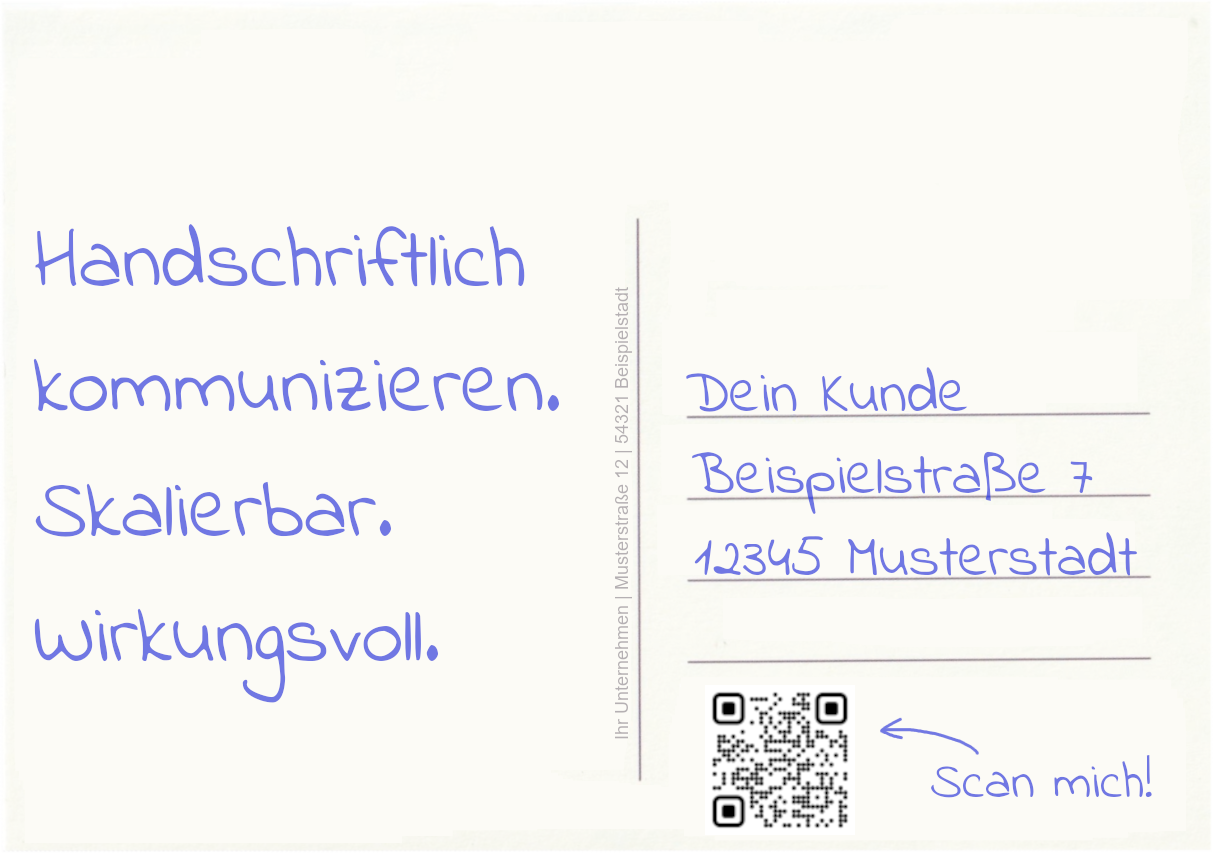 Handschriftlich
kommunizieren.
Skalierbar.
wirkungsvoll.
Ihr Unternehmen | Musterstraße 12 | 54321 Beispielstadt
Dein Kunde
Beispielstraße 7
12345 Musterstadt
Scan mich!